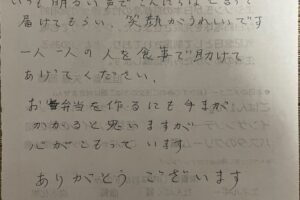 いつも明るい声でこんにちはと言って
届けてもらい、笑顔がうれしいです
一人一人の人を食事で助けて
あげてください。
お弁当を作るにも手まが
かかると思いますが
心がこもっています
ありがとうございます